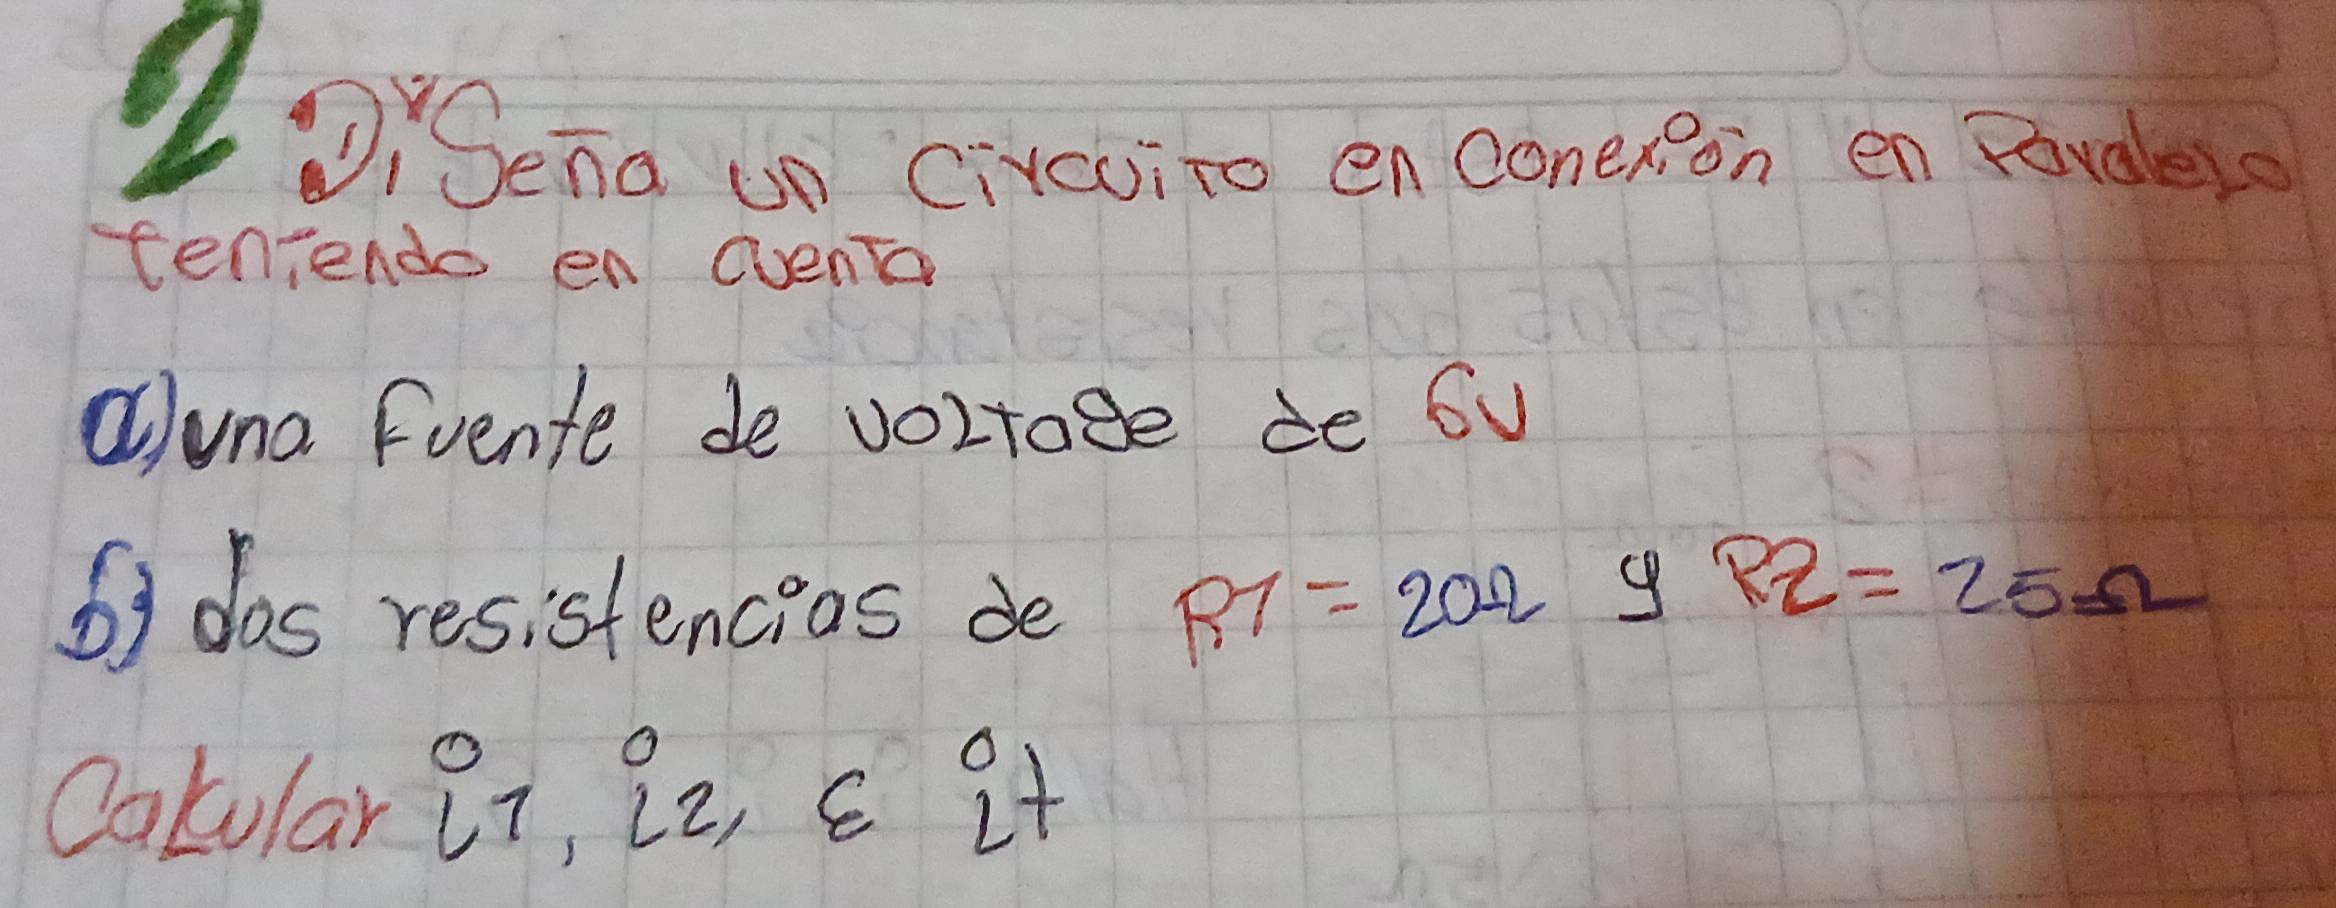 2 Diseña un circuito en conexión en Paralelo
teniendo en cuenta
a) una fuente de voltage de 6v
b) dos resistencias de R1 = 20Ω y R2 = 25Ω
Calcular i1, i2, e it